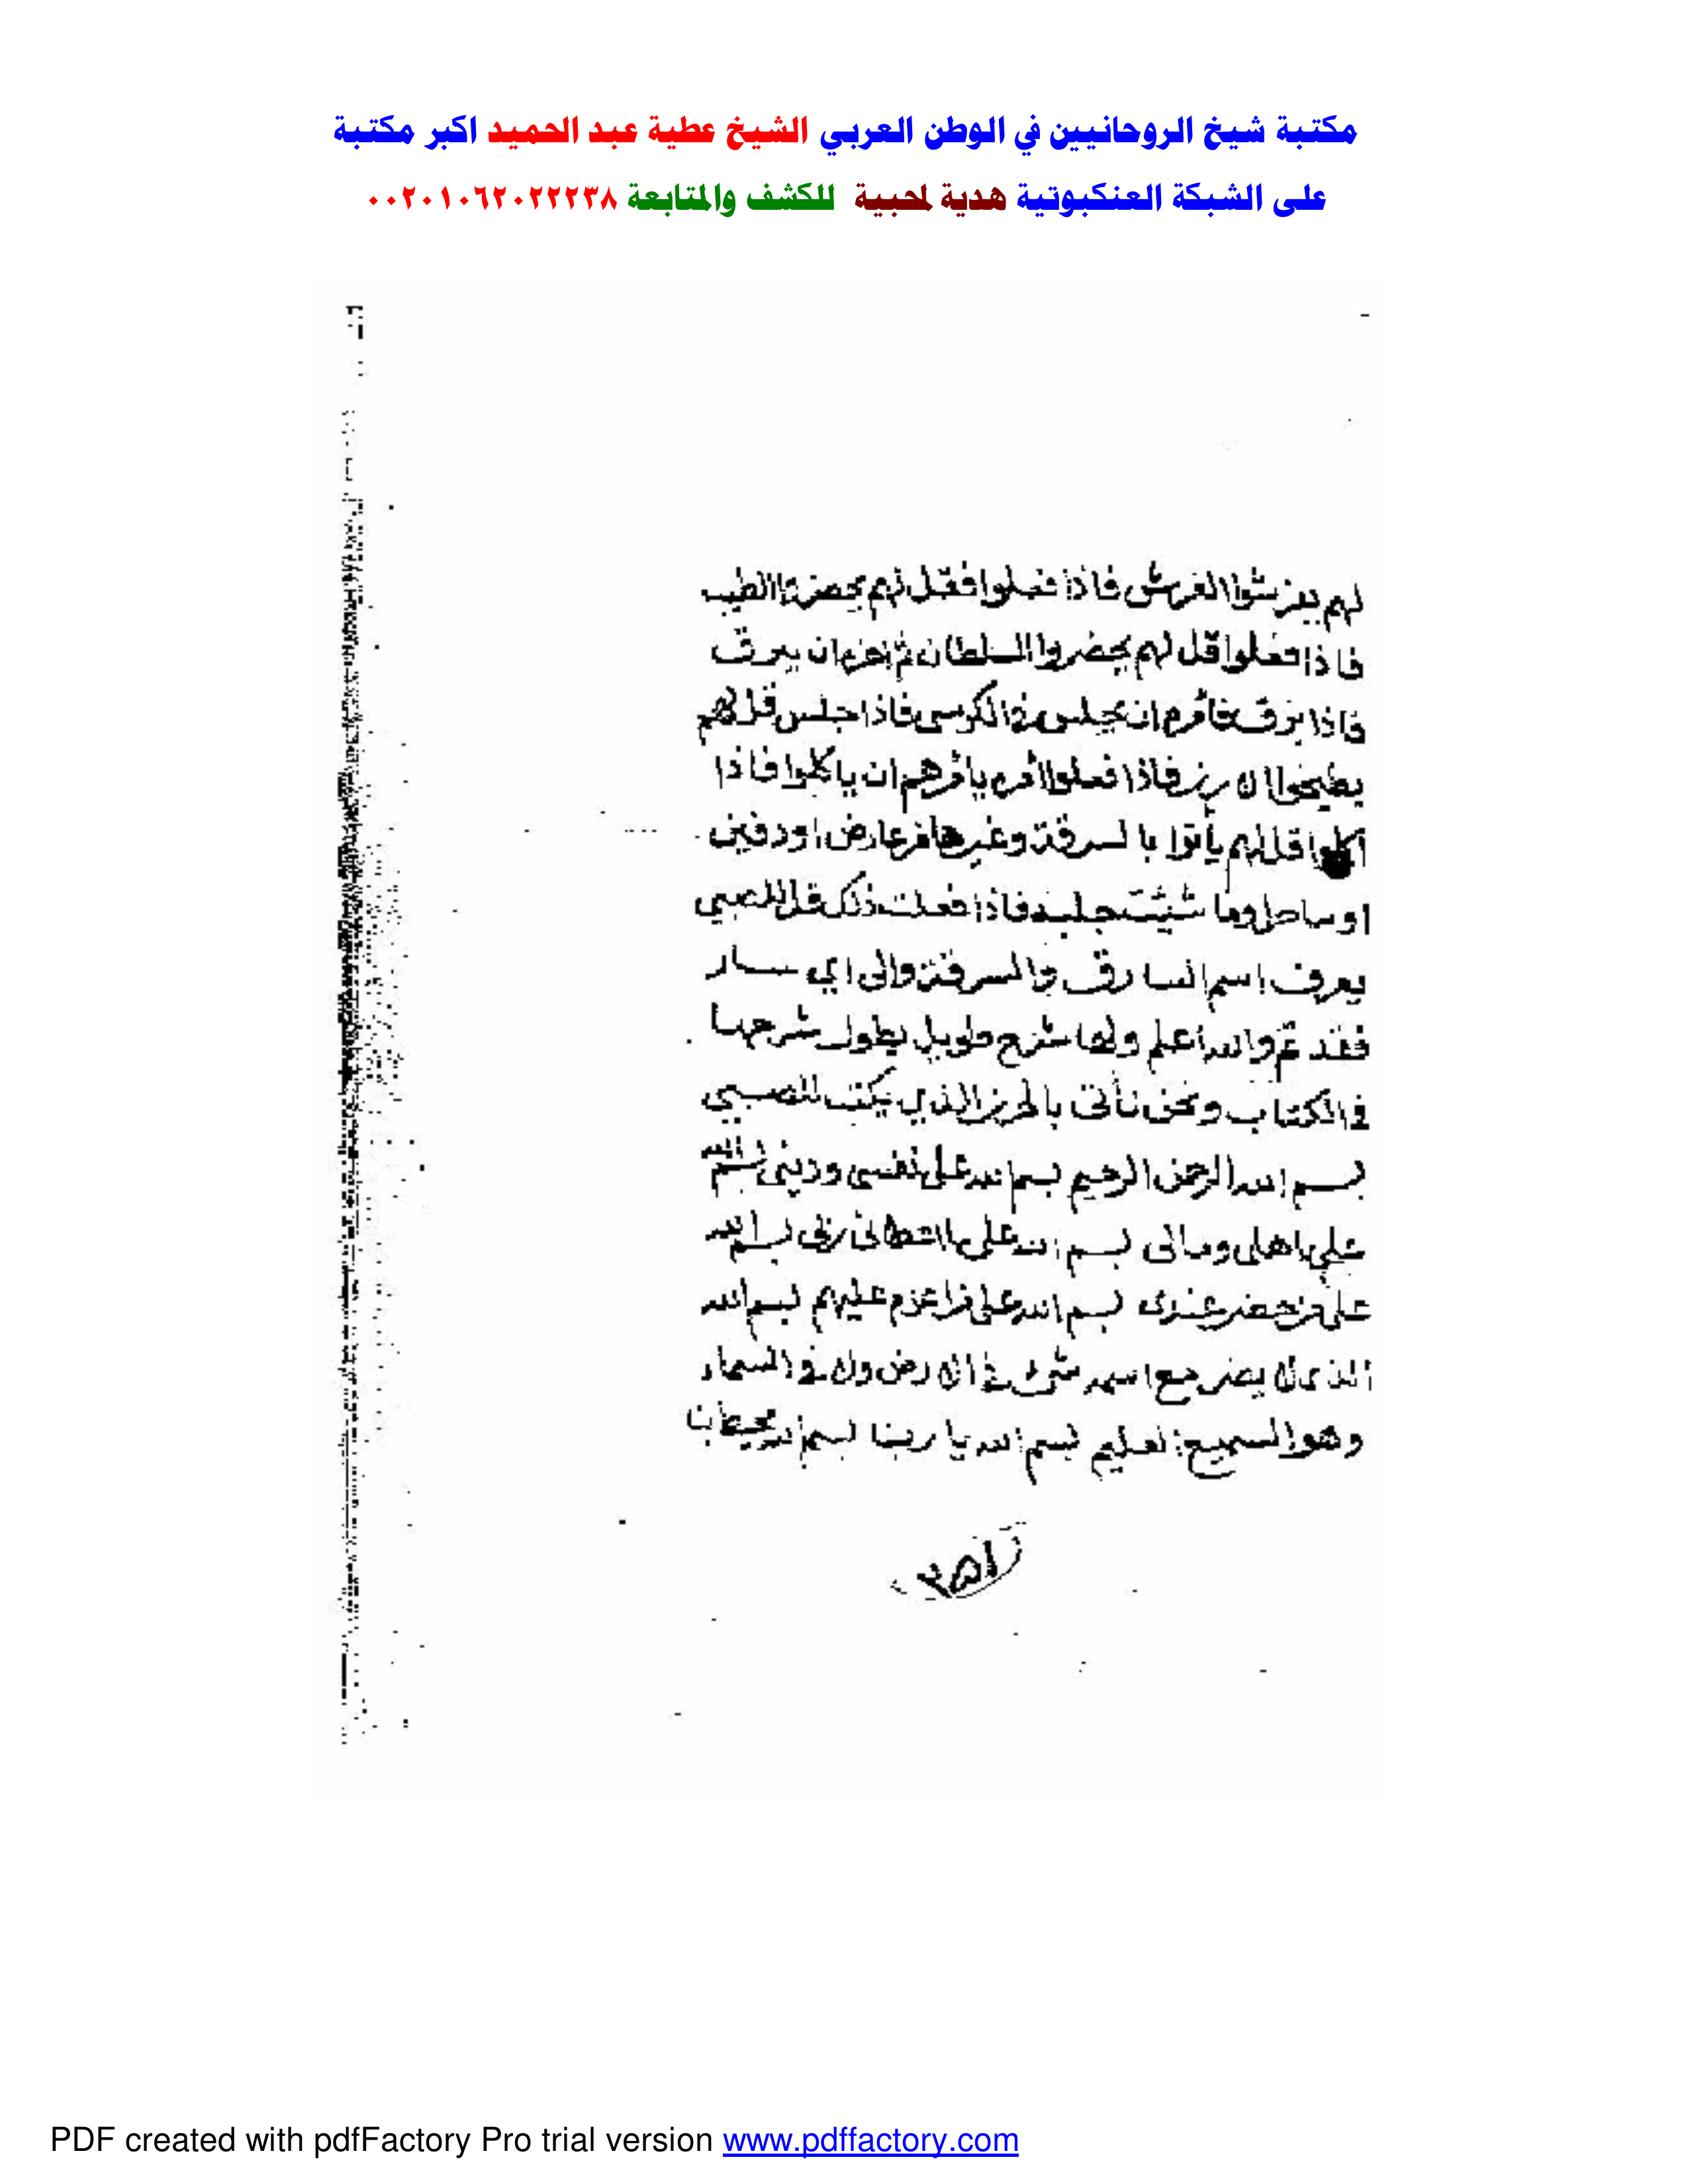 مكتبة شيخ الروحانيين في الوطن العربي الشيخ عطية عبد الحميد اكبر مكتبة
على الشبكة العنكبوتية هدية لمحبية للكشف والمتابعة ٠٠٢٠١٠٦٢٠٢٢٢٣٨
لهم يفرشوا الفرش فاذا فعلوا فقل لهم يحضروا الطيب
فاذا فعلوا قل لهم يحضروا السلطان ثم
فاذا فامره ان يجلس الكرسى فاذا جلس قل لهم
يطبخوا الارز فاذا فعلوا امره يامرهم ان ياكلوا فاذا
اكلوا قل لهم يأتوا بالسرقة وغيرها عارض او دفين
او ساحل وما شئت فاذا فعلت ذلك قل للصبي
يعرف اسم السارق والسرقة والى اي
فقد تم والله اعلم ولها شرح طويل يطول شرحها
في الكتاب ونحن نأتى بالحرز الذي يكتب للصبي
بسم الله الرحمن الرحيم بسم الله على نفسى ودينى بسم الله
على اهلى ومالى بسم الله على ما اعطانى ربى بسم الله
على من حضر عندى بسم الله على من اعزم عليهم بسم الله
الذى لا يضر مع اسمه شىء فى الارض ولا فى السماء
وهو السميع العليم بسم الله يا ربنا بسم الله
PDF created with pdfFactory Pro trial version www.pdffactory.com